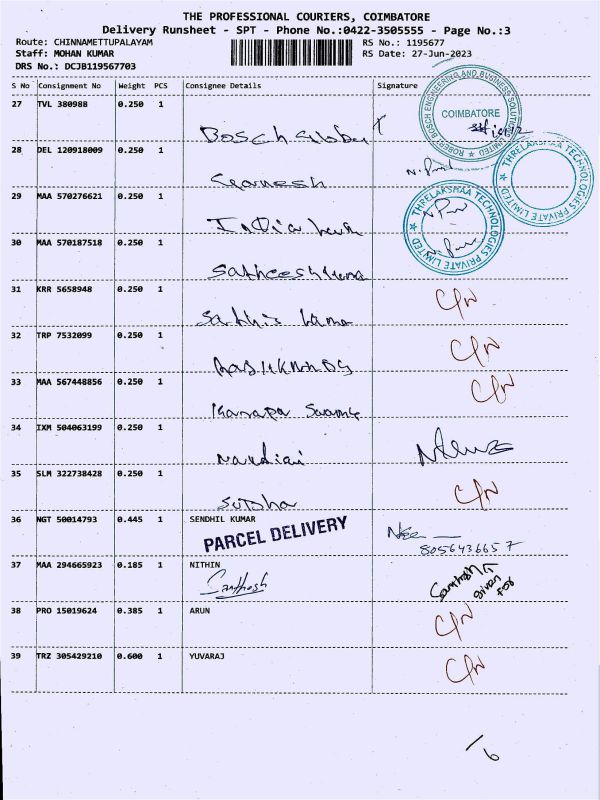 THE PROFESSIONAL COURIERS, COIMBATORE
Delivery Runsheet - SPT - Phone No.:0422-3505555 - Page No.:3
Route: CHINNAMETTUPALAYAM RS No.: 1195677
Staff: MOHAN KUMAR RS Date: 27-Jun-2023
DRS No.: DCJB119567703
S No Consignment No Weight PCS Consignee Details Signature
27 TVL 380988 0.250 1 Bosch
ROBERT BOSCH ENGINEERING AND BUSINESS SOLUTIONS LIMITED
COIMBATORE
28 DEL 120918009 0.250 1 Ganesh
THRELAKSHAA TECHNOLOGIES PRIVATE LIMITED
29 MAA 570276621 0.250 1 India
THRELAKSHAA TECHNOLOGIES PRIVATE LIMITED
30 MAA 570187518 0.250 1 Satheeshkumar
31 KRR 5658948 0.250 1 Sathis Kumar
32 TRP 7532099 0.250 1
33 MAA 567448856 0.250 1 Swamy
34 IXM 504063199 0.250 1
35 SLM 322738428 0.250 1 Subha
36 NGT 50014793 0.445 1 SENDHIL KUMAR
PARCEL DELIVERY
8056436657
37 MAA 294665923 0.185 1 NITHIN
Santhosh
given for
38 PRO 15019624 0.385 1 ARUN
39 TRZ 305429210 0.600 1 YUVARAJ